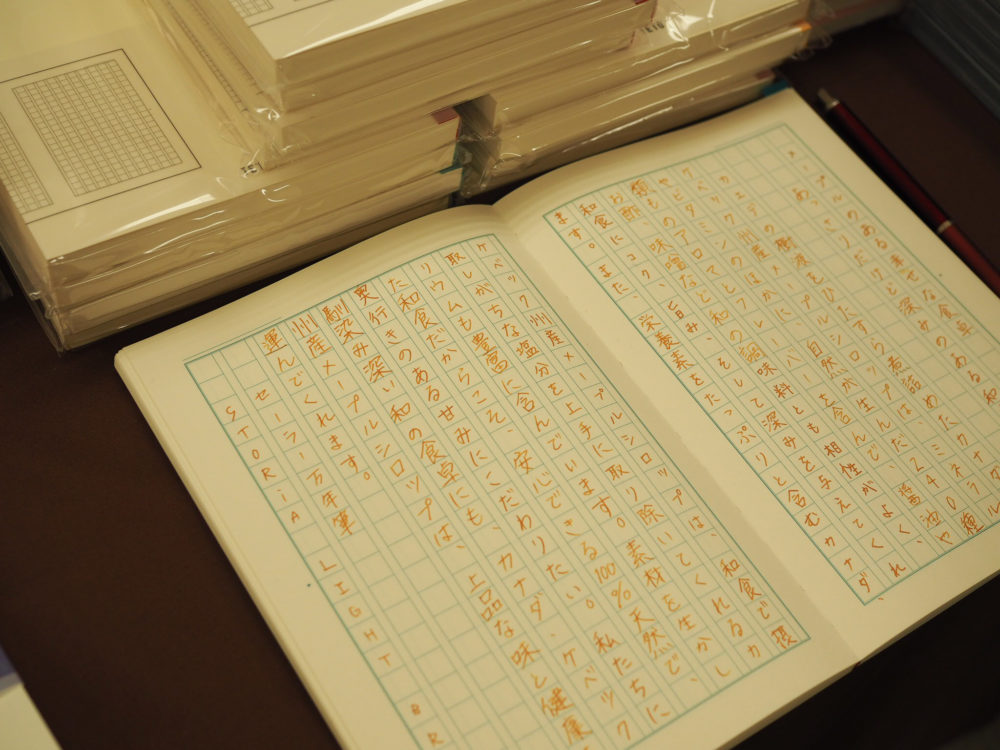 メープルのある幸せな食卓
あっさりだけど深みのある和
カエデの樹液をひたすら煮詰めたカナダ
ケベック州産メープルシロップは、ミネラル
やビタミンのほかに、自然が生んだ240種
類ものアロマ を含んで、醤油や
お酢、味噌など和の調味料とも相性がよく、
和食にコク、旨み、そして深みを与えてくれ
ます。また、栄養素をたっぷりと含むカナダ、
ケベック州産メープルシロップは、和食で摂
取しがちな塩分を上手に取り除いてくれるカ
リウムも豊富に含んでいます。素材を生かし
た和食だからこそ、安心できる100%天然で、
奥行きのある甘みにこだわりたい。私たちに
馴染み深い和の食卓にも、カナダ、ケベック
州産メープルシロップは、上品な味と健康
運んでくれます。
セーラー万年筆
STORiA LIGHT BR